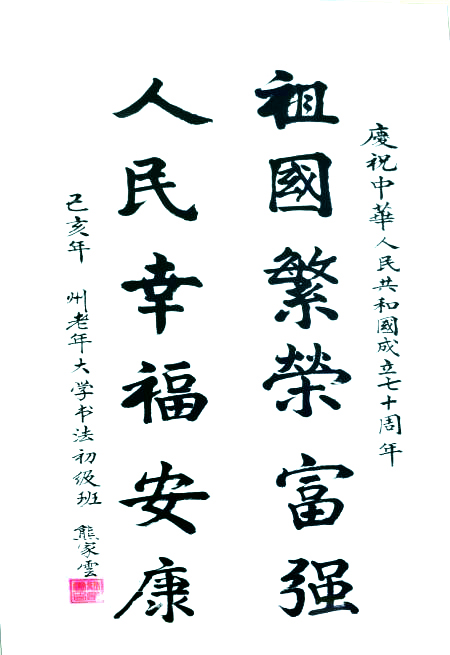 慶祝中華人民共和國成立七十周年
祖國繁榮富强
人民幸福安康
己亥年 州老年大学书法初级班 熊家雲